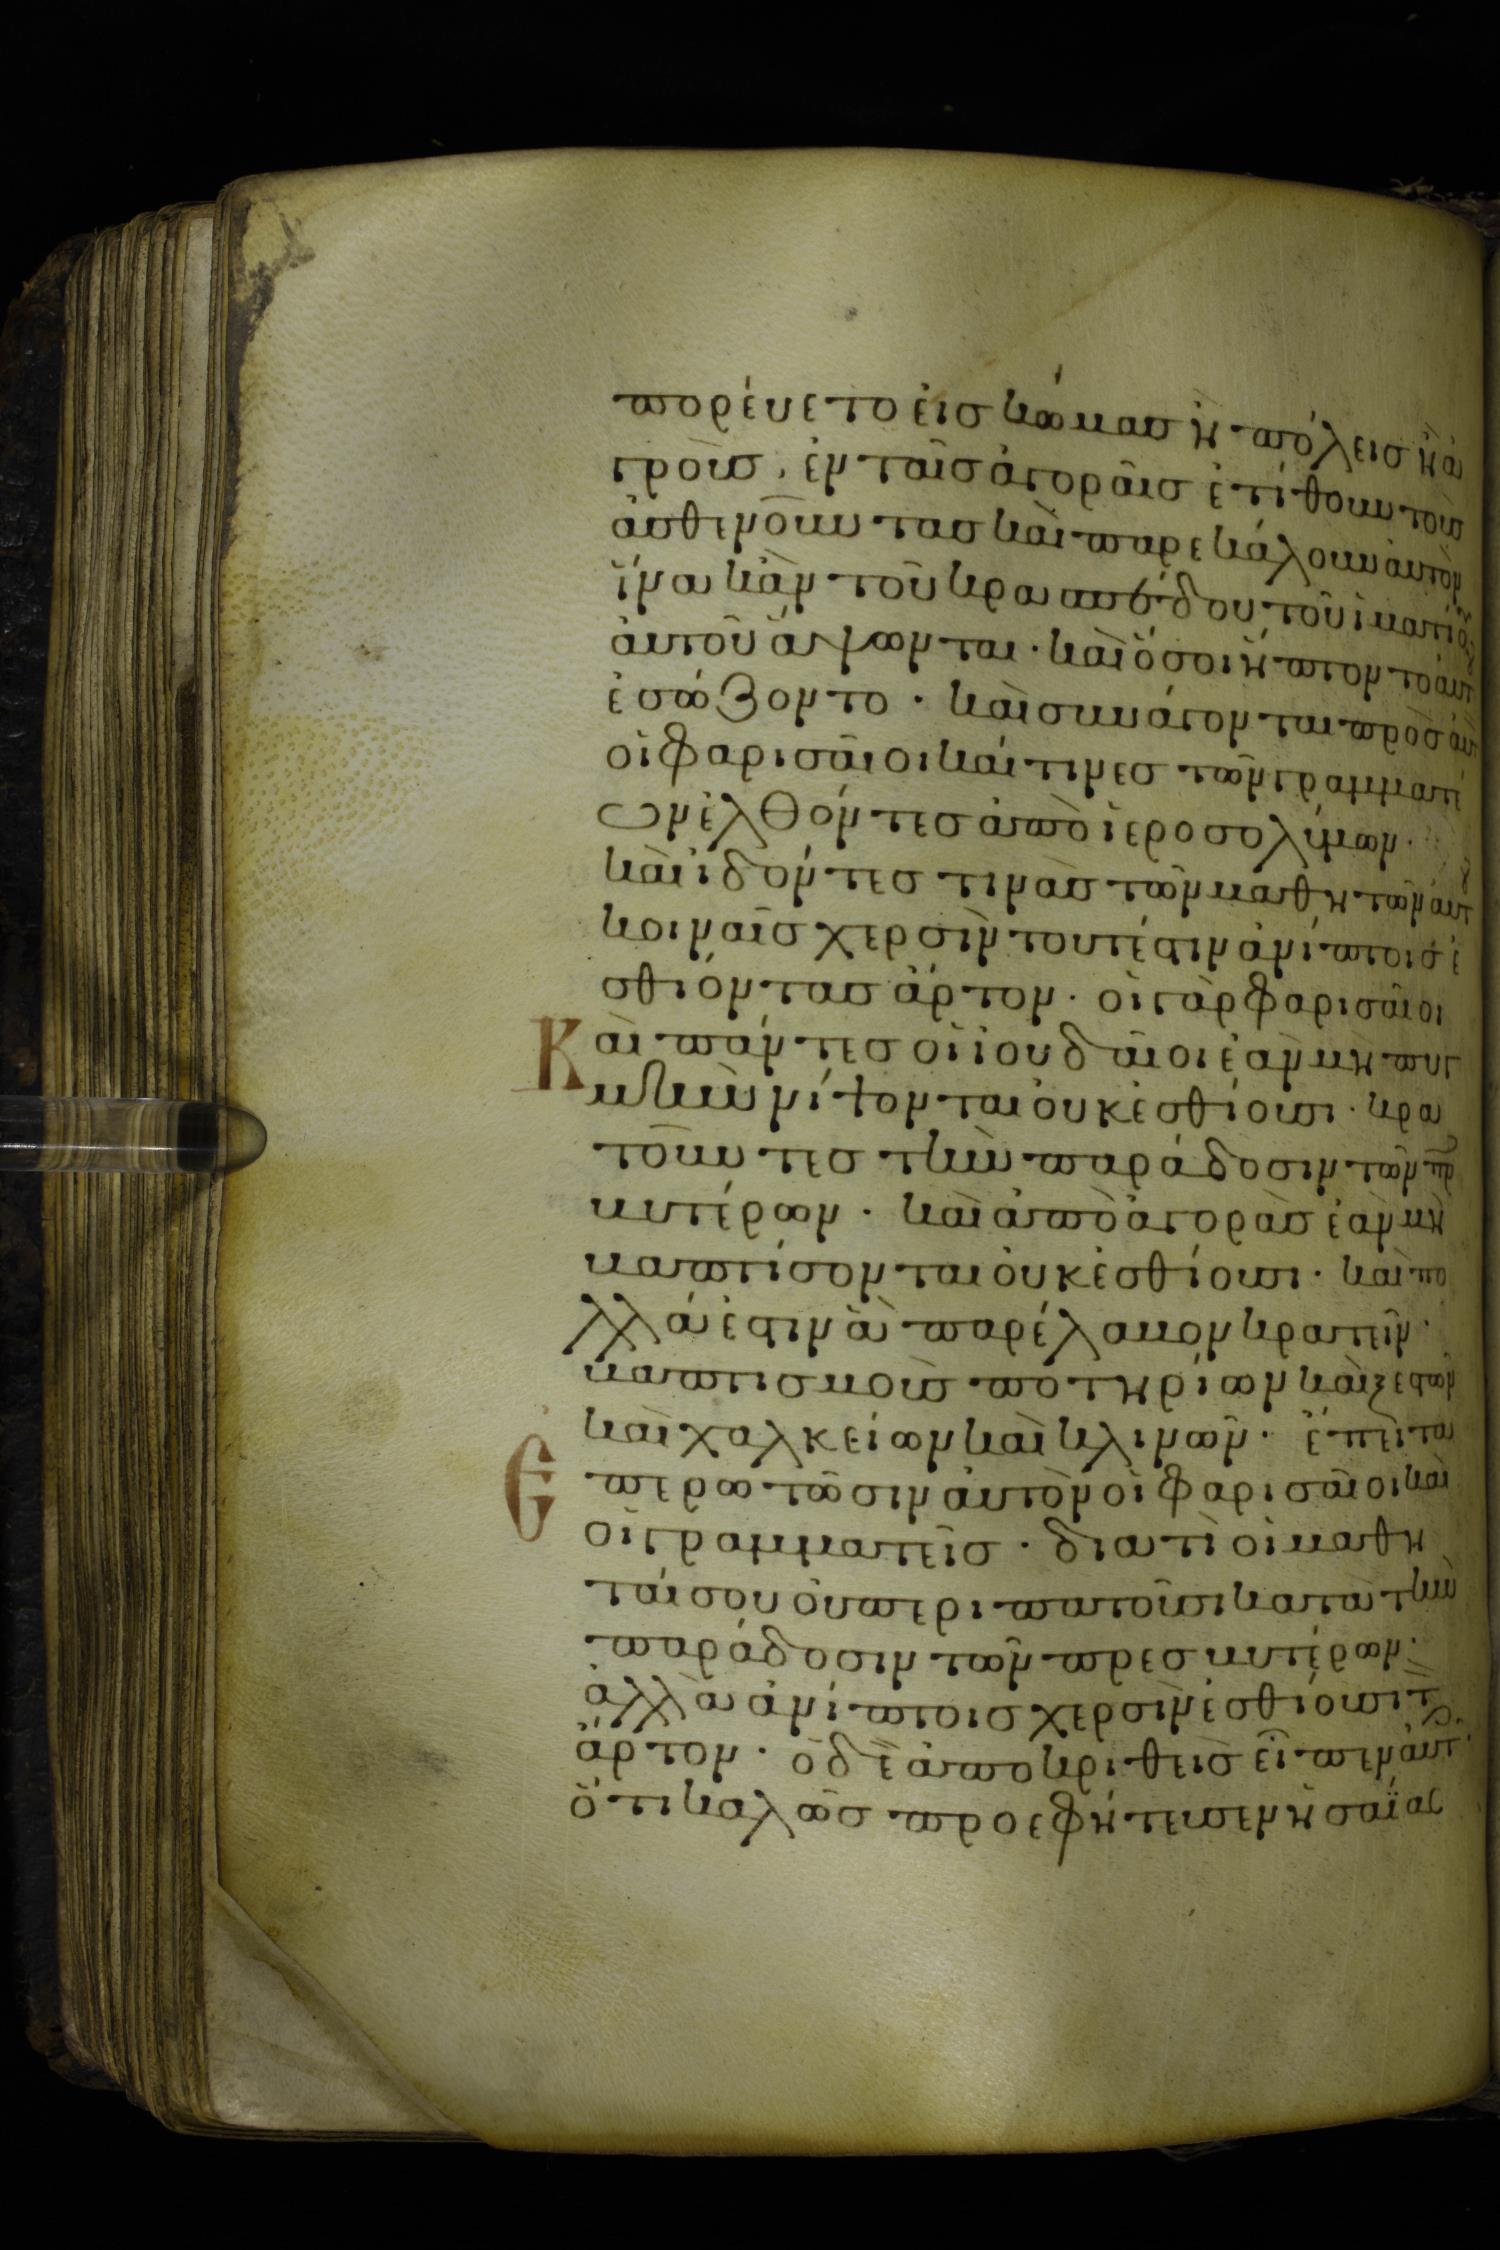 πορεύετο εἰς κώμας ἢ πόλεις ἢ ἀ
γροὺς, ἐν ταῖς ἀγοραῖς ἐτίθουν τοὺς
ἀσθενοῦντας καὶ παρεκάλουν αὐτὸν
ἵνα κἂν τοῦ κρασπέδου τοῦ ἱματίου
αὐτοῦ ἅψωνται· καὶ ὅσοι ἥπτοντο αὐτοῦ
ἐσώζοντο· καὶ συνάγονται πρὸς αὐτὸν
οἱ φαρισαῖοι καί τινες τῶν γραμματέ
ων ἐλθόντες ἀπὸ ἱεροσολύμων·
καὶ ἰδόντες τινὰς τῶν μαθητῶν αὐτοῦ
κοιναῖς χερσὶν τουτέστιν ἀνίπτοις ἐ
σθίοντας ἄρτον· οἱ γὰρ φαρισαῖοι
Καὶ πάντες οἱ ἰουδαῖοι ἐὰν μὴ πυ
γμῇ νίψονται οὐκ ἐσθίουσι· κρα
τοῦντες τὴν παράδοσιν τῶν πρεσ
βυτέρων· καὶ ἀπὸ ἀγορὰς ἐὰν μὴ
βαπτίσονται οὐκ ἐσθίουσι· καὶ ἄ
λλά ἐστιν ἃ παρέλαβον κρατεῖν·
βαπτισμοὺς ποτηρίων καὶ ξεστῶν
καὶ χαλκείων καὶ κλινῶν· ἔπειτα
Ἐπερωτῶσιν αὐτὸν οἱ φαρισαῖοι καὶ
οἱ γραμματεῖς· διατὶ οἱ μαθη
ταί σου οὐ περιπατοῦσι κατὰ τὴν
παράδοσιν τῶν πρεσβυτέρων·
ἀλλὰ ἀνίπτοις χερσὶν ἐσθίουσι τὸν
ἄρτον· ὁ δὲ ἀποκριθεὶς εἶπεν αὐτοῖς
ὅτι καλῶς προεφήτευσεν ἡσαΐας